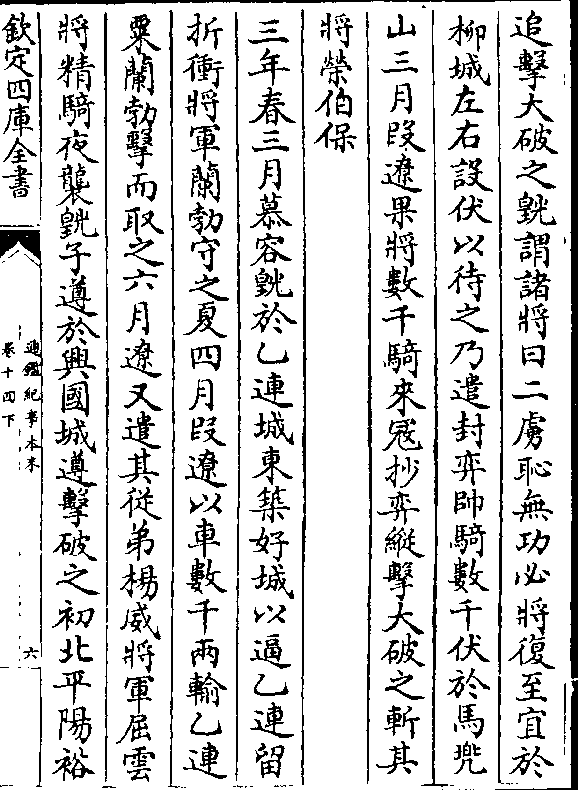 追擊大破之皝謂諸將曰二虜恥無功必將復至宜於
柳城左右設伏以待之乃遣封弈帥騎數千伏於馬兜
山三月段遼果將數千騎來寇抄弈縱擊大破之斬其
將榮伯保
三年春三月慕容皝於乙連城東築好城以逼乙連留
折衝將軍蘭勃守之夏四月段遼以車數千兩輸乙連
粟蘭勃擊而取之六月遼又遣其從弟楊威將軍屈雲
將精騎夜襲皝子遵於興國城遵擊破之初北平陽裕
欽定四庫全書
通鑑紀事本末
卷十四下
六